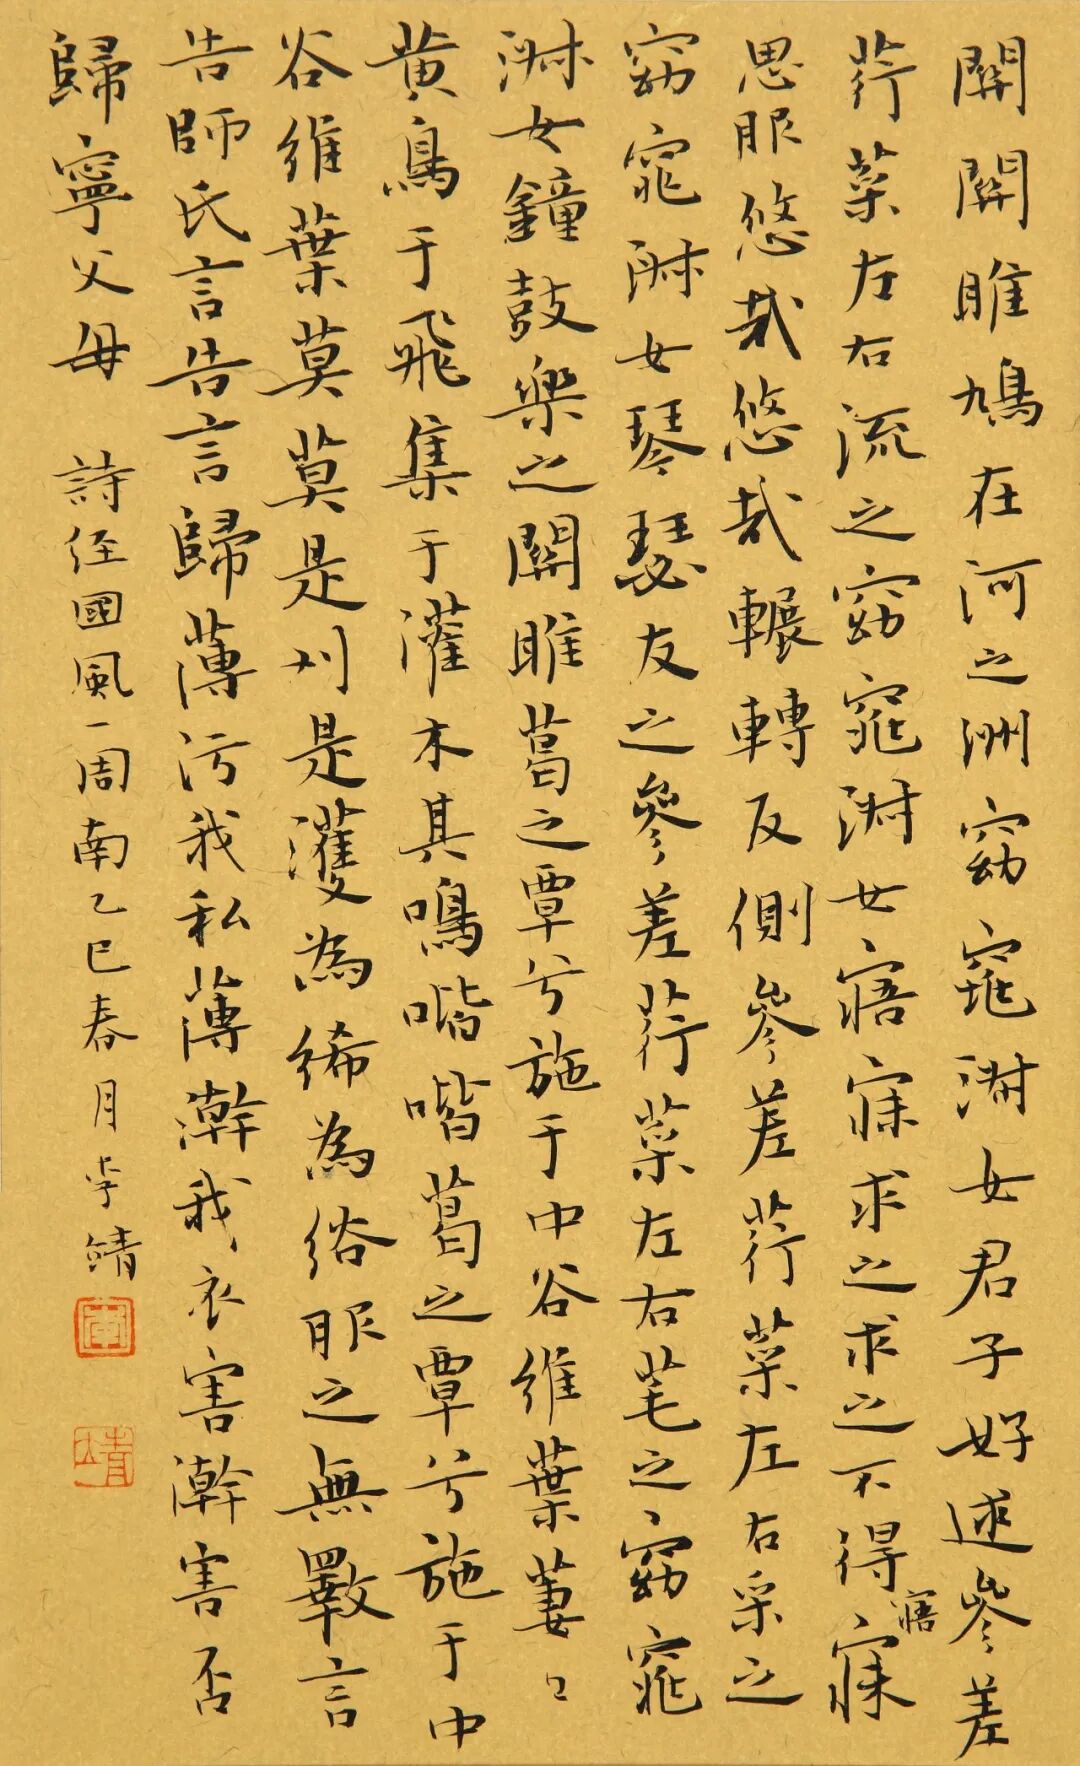 關關雎鳩在河之洲窈窕淑女君子好逑參差
荇菜左右流之窈窕淑女寤寐求之求之不得寤寐
思服悠哉悠哉輾轉反側參差荇菜左右采之
窈窕淑女琴瑟友之參差荇菜左右芼之窈窕
淑女鐘鼓樂之關雎葛之覃兮施于中谷維葉萋〻
黃鳥于飛集于灌木其鳴喈喈葛之覃兮施于中
谷維葉莫莫是刈是濩為絺為綌服之無斁言
告師氏言告言歸薄污我私薄澣我衣害澣害否
歸寧父母 詩經國風一周南乙巳春月李靖
靖